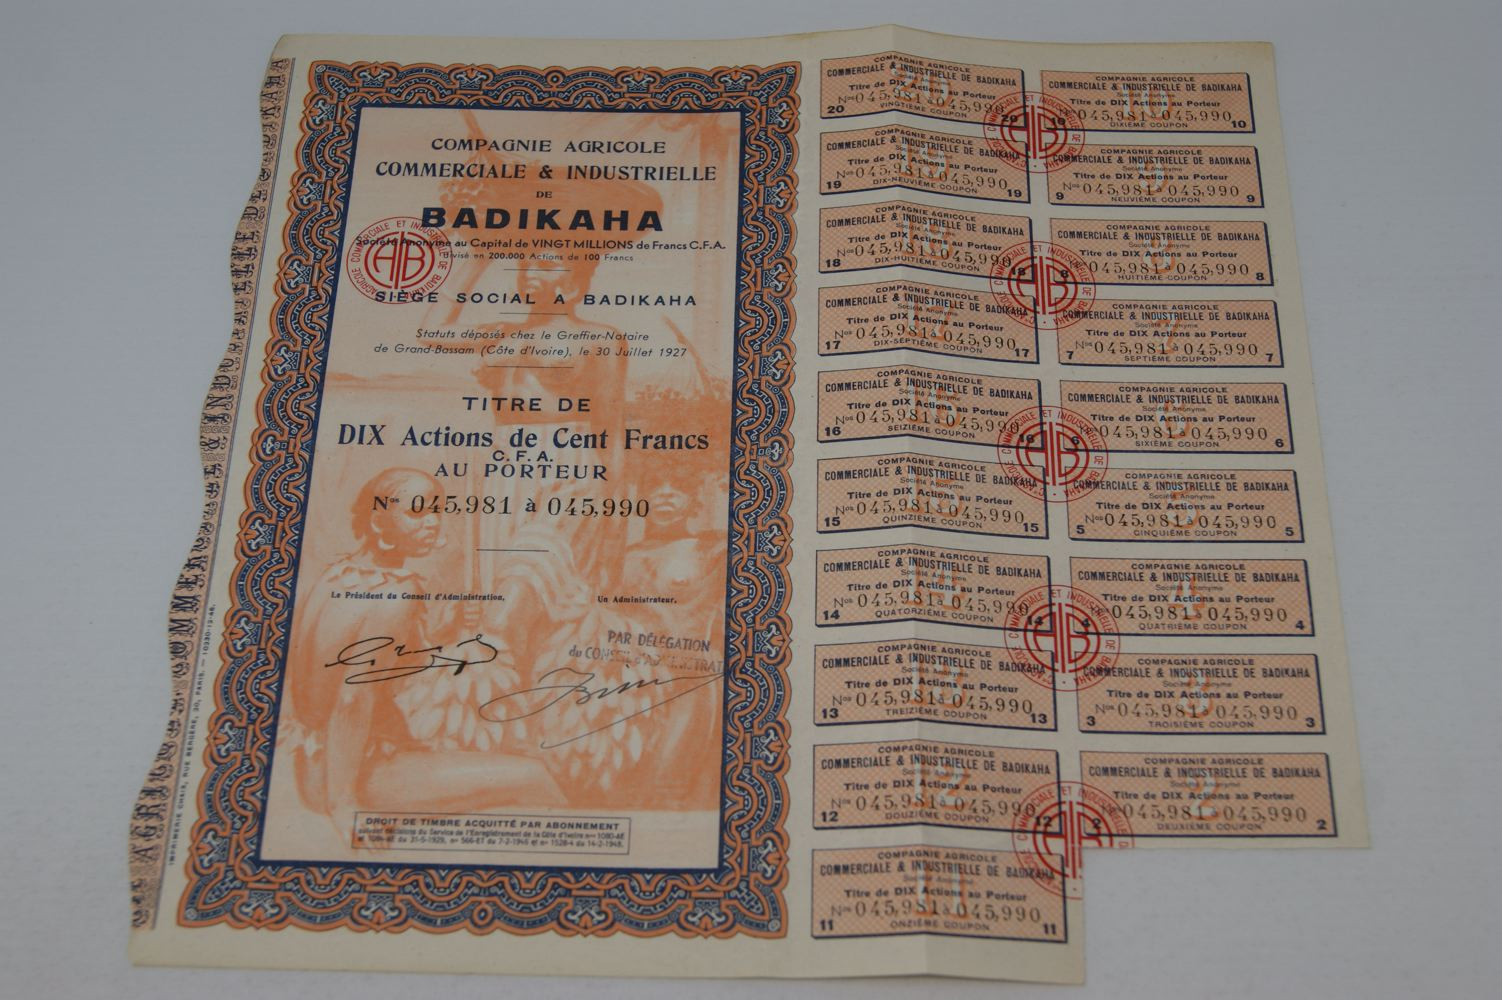 COMPAGNIE AGRICOLE
COMMERCIALE & INDUSTRIELLE
DE
BADIKAHA
Société Anonyme au Capital de VINGT MILLIONS de Francs C.F.A.
Divisé en 200.000 Actions de 100 Francs
SIÈGE SOCIAL A BADIKAHA
Statuts déposés chez le Greffier-Notaire
de Grand-Bassam (Côte d'Ivoire), le 30 Juillet 1927
TITRE DE
DIX Actions de Cent Francs
C.F.A.
AU PORTEUR
Nos 045,981 à 045,990
Le Président du Conseil d'Administration,
Un Administrateur.
PAR DÉLÉGATION
du CONSEIL d'ADMINISTRAT
DROIT DE TIMBRE ACQUITTÉ PAR ABONNEMENT
suivant décisions du Service de l'Enregistrement de la Côte d'Ivoire nos 1080-AE
et 1084-AE du 31-5-1929, n° 566-ET du 7-2-1946 et n° 1528-4 du 14-2-1948.
IMPRIMERIE CHAIX, RUE BERGÈRE, 20, PARIS. — 10330-12-48.
COMPAGNIE AGRICOLE
COMMERCIALE & INDUSTRIELLE DE BADIKAHA
Société Anonyme
Titre de DIX Actions au Porteur
Nos 045,981 à 045,990
20 VINGTIÈME COUPON 20
COMPAGNIE AGRICOLE
COMMERCIALE & INDUSTRIELLE DE BADIKAHA
Société Anonyme
Titre de DIX Actions au Porteur
045,981 à 045,990
10 DIXIÈME COUPON 10
COMPAGNIE AGRICOLE
COMMERCIALE & INDUSTRIELLE DE BADIKAHA
Société Anonyme
Titre de DIX Actions au Porteur
Nos 045,981 à 045,990
19 DIX-NEUVIÈME COUPON 19
COMPAGNIE AGRICOLE
COMMERCIALE & INDUSTRIELLE DE BADIKAHA
Société Anonyme
Titre de DIX Actions au Porteur
Nos 045,981 à 045,990
9 NEUVIÈME COUPON 9
COMPAGNIE AGRICOLE
COMMERCIALE & INDUSTRIELLE DE BADIKAHA
Société Anonyme
Titre de DIX Actions au Porteur
Nos 045,981 à 045,990
18 DIX-HUITIÈME COUPON 18
COMPAGNIE AGRICOLE
COMMERCIALE & INDUSTRIELLE DE BADIKAHA
Société Anonyme
Titre de DIX Actions au Porteur
045,981 à 045,990
8 HUITIÈME COUPON 8
COMPAGNIE AGRICOLE
COMMERCIALE & INDUSTRIELLE DE BADIKAHA
Société Anonyme
Titre de DIX Actions au Porteur
Nos 045,981 à 045,990
17 DIX-SEPTIÈME COUPON 17
COMPAGNIE AGRICOLE
COMMERCIALE & INDUSTRIELLE DE BADIKAHA
Société Anonyme
Titre de DIX Actions au Porteur
Nos 045,981 à 045,990
7 SEPTIÈME COUPON 7
COMPAGNIE AGRICOLE
COMMERCIALE & INDUSTRIELLE DE BADIKAHA
Société Anonyme
Titre de DIX Actions au Porteur
Nos 045,981 à 045,990
16 SEIZIÈME COUPON 16
COMPAGNIE AGRICOLE
COMMERCIALE & INDUSTRIELLE DE BADIKAHA
Société Anonyme
Titre de DIX Actions au Porteur
045,981 à 045,990
6 SIXIÈME COUPON 6
COMPAGNIE AGRICOLE
COMMERCIALE & INDUSTRIELLE DE BADIKAHA
Société Anonyme
Titre de DIX Actions au Porteur
Nos 045,981 à 045,990
15 QUINZIÈME COUPON 15
COMPAGNIE AGRICOLE
COMMERCIALE & INDUSTRIELLE DE BADIKAHA
Société Anonyme
Titre de DIX Actions au Porteur
Nos 045,981 à 045,990
5 CINQUIÈME COUPON 5
COMPAGNIE AGRICOLE
COMMERCIALE & INDUSTRIELLE DE BADIKAHA
Société Anonyme
Titre de DIX Actions au Porteur
Nos 045,981 à 045,990
14 QUATORZIÈME COUPON 14
COMPAGNIE AGRICOLE
COMMERCIALE & INDUSTRIELLE DE BADIKAHA
Société Anonyme
Titre de DIX Actions au Porteur
045,981 à 045,990
4 QUATRIÈME COUPON 4
COMPAGNIE AGRICOLE
COMMERCIALE & INDUSTRIELLE DE BADIKAHA
Société Anonyme
Titre de DIX Actions au Porteur
Nos 045,981 à 045,990
13 TREIZIÈME COUPON 13
COMPAGNIE AGRICOLE
COMMERCIALE & INDUSTRIELLE DE BADIKAHA
Société Anonyme
Titre de DIX Actions au Porteur
Nos 045,981 à 045,990
3 TROISIÈME COUPON 3
COMPAGNIE AGRICOLE
COMMERCIALE & INDUSTRIELLE DE BADIKAHA
Société Anonyme
Titre de DIX Actions au Porteur
Nos 045,981 à 045,990
12 DOUZIÈME COUPON 12
COMPAGNIE AGRICOLE
COMMERCIALE & INDUSTRIELLE DE BADIKAHA
Société Anonyme
Titre de DIX Actions au Porteur
045,981 à 045,990
2 DEUXIÈME COUPON 2
COMPAGNIE AGRICOLE
COMMERCIALE & INDUSTRIELLE DE BADIKAHA
Société Anonyme
Titre de DIX Actions au Porteur
Nos 045,981 à 045,990
11 ONZIÈME COUPON 11